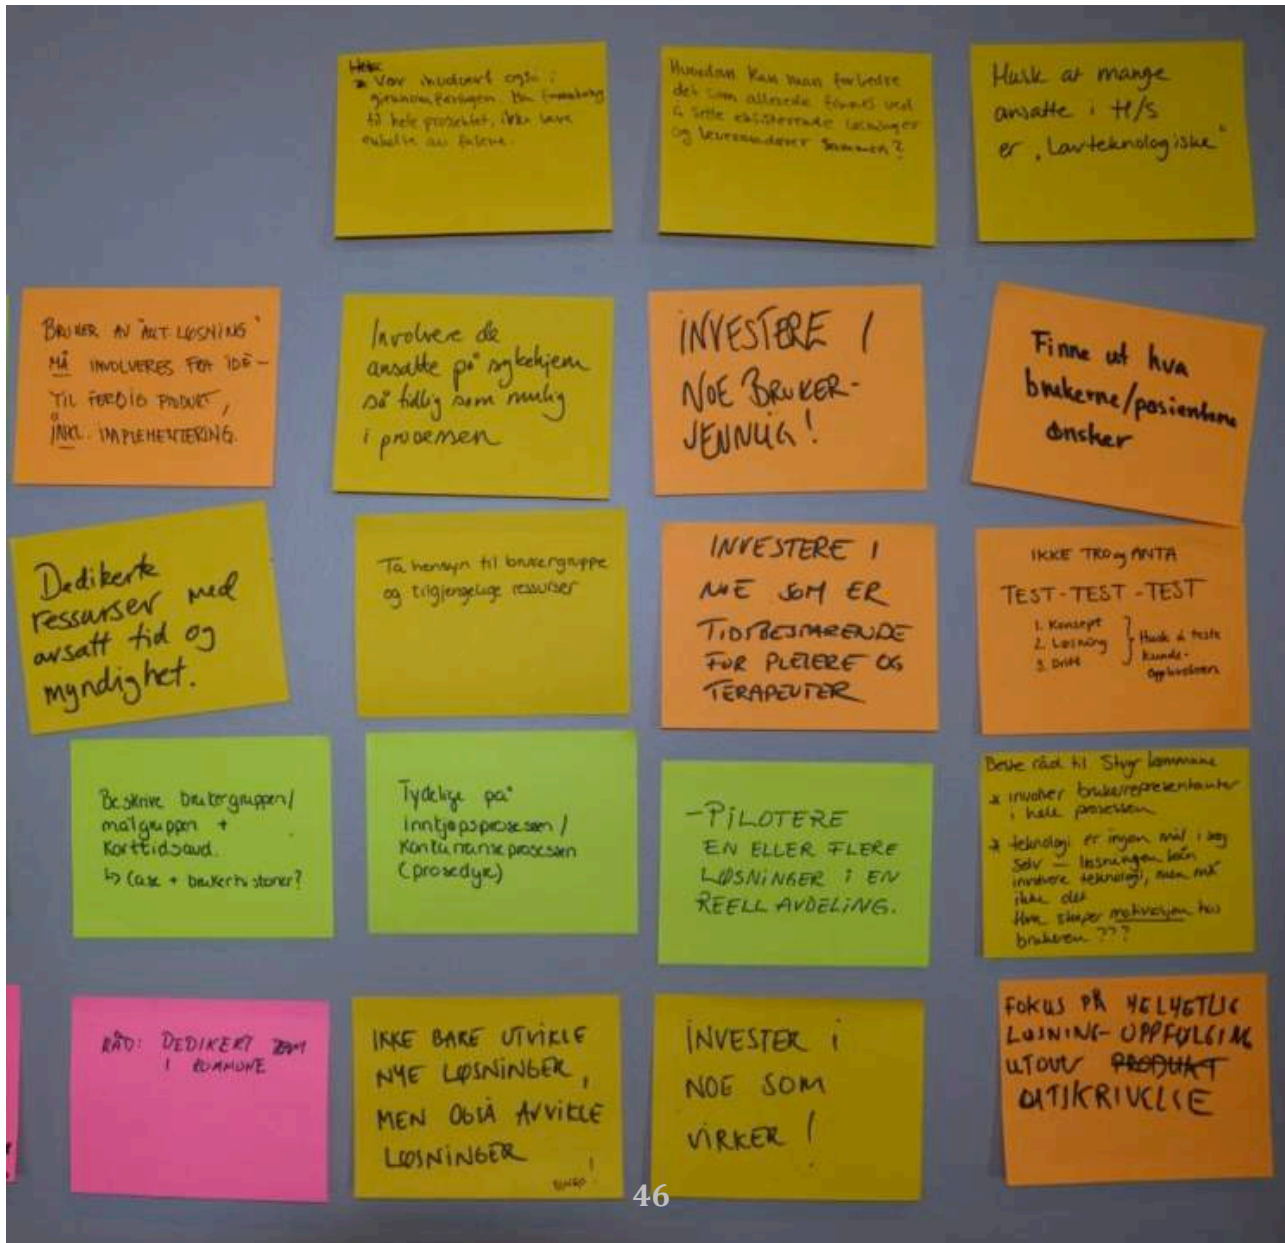 * Vær involvert også i
gjennomføringen. Ha
til hele prosjektet, ikke bare
enkelte av fasene.
Hvordan kan man forbedre
det som allerede finnes ved
å sette eksisterende løsninger
og leverandører sammen?
Husk at mange
ansatte i H/S
er "Lavteknologiske"
BRUKER AV "ALT.LØSNING"
MÅ INVOLVERES FRA IDE-
TIL FERDIG PRODUKT,
INKL. IMPLEMENTERING.
Involvere de
ansatte på sykehjem
så tidlig som mulig
i prosessen
INVESTERE I
NOE BRUKER-
VENNLIG!
Finne ut hva
brukerne/pasientene
ønsker
Dedikerte
ressurser med
avsatt tid og
myndighet.
Ta hensyn til brukergruppe
og tilgjengelige ressurser
INVESTERE I
NOE SOM ER
TIDSBESPARENDE
FOR PLEIERE OG
TERAPEUTER
IKKE TRO og ANTA
TEST-TEST-TEST
1. Konsept
2. Løsning
3. Drift
Husk å teste
kunde-
opplevelsen
Beskrive brukergruppen/
målgruppen +
korttidsavd.
↳ Case + brukerhistorier?
Tydelige på
innkjøpsprosessen/
konkurranseprosessen
(prosedyre)
-PILOTERE
EN ELLER FLERE
LØSNINGER I EN
REELL AVDELING.
Beste råd til kommune
* involver brukerrepresentanter
i hele prosessen
* teknologi er ingen mål i seg
selv - løsningen kan
involvere teknologi, men må
ikke det
Hva skaper motivasjon hos
brukeren ???
RÅD: DEDIKERT TEAM
I KOMMUNE
IKKE BARE UTVIKLE
NYE LØSNINGER,
MEN OGSÅ AVVIKLE
LØSNINGER!
BINGO
INVESTER I
NOE SOM
VIRKER!
FOKUS PÅ HELHETLIG
LØSNING-OPPFØLGING
UTOVER PRODUKT
UTSKRIVELSE
46